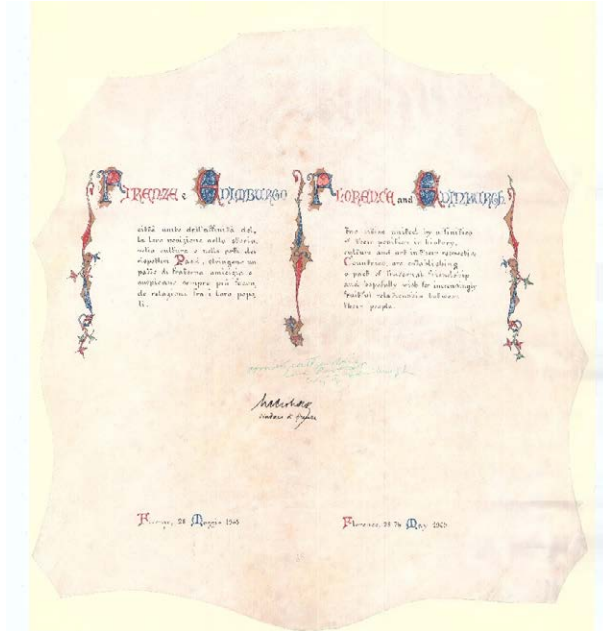 FIRENZE e EDIMBURGO
città unite dall'affinità del
la loro posizione nella storia,
nella cultura e nella arte dei
rispettivi Paesi, stringono un
patto di fraterna amicizia e
auspicano sempre più fecon
de relazioni fra i loro popo
li.
FLORENCE and EDINBURGH
two cities united by affinities
of their position in history,
culture and art in their respective
Countries, are establishing
a pact of fraternal friendship
and hopefully wish for increasingly
fruitful relationships between
their people.
Sindaco di Firenze
Firenze, 28 Maggio
Florence, 28 th May